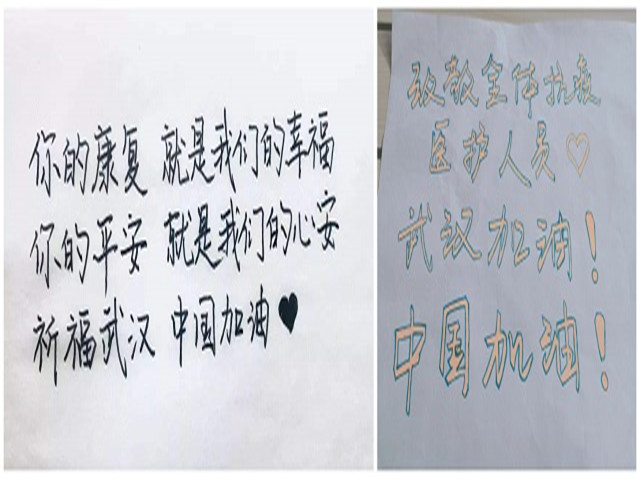 你的康复 就是我们的幸福
你的平安 就是我们的心安
祈福武汉 中国加油♥
致敬全体抗疫
医护人员♡
武汉加油!
中国加油!